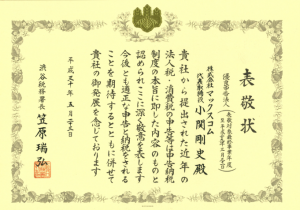 表敬状
優良申告法人
株式会社マックスコム
代表取締役 小関剛史殿
貴社から提出された近年の
法人税・消費税の申告等は申告納税
制度の本旨に即した内容のものと
認められここに深く敬意を表します
今後とも適正な申告と納税をされる
ことを期待するとともに併せて
貴社の御発展を念じております
平成二十年五月二十三日
渋谷税務署長
笠原瑞弘